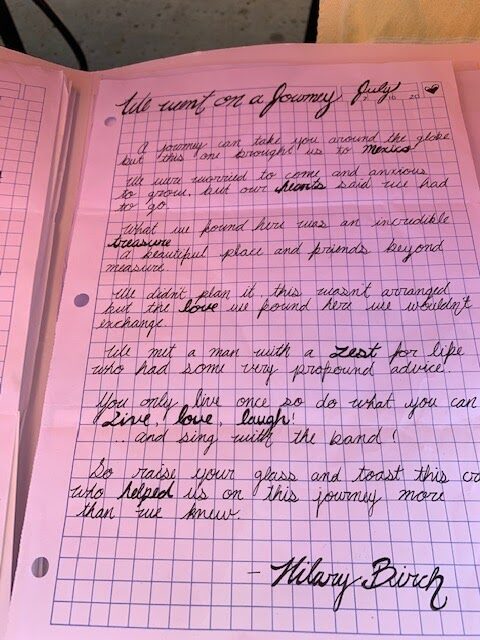 We went on a Journey July
7 16 20
A journey can take you around the globe
but this one brought us to Mexico
We were worried to come and anxious
to grow, but our hearts said we had
to go.
What we found here was an incredible
treasure
a beautiful place and friends beyond
measure
We didn't plan it, this wasn't arranged
but the love we found here we wouldn't
exchange.
We met a man with a zest for life
who had some very profound advice..
You only live once so do what you can
Live, love, laugh!
... and sing with the band!
So raise your glass and toast this
who helped us on this journey more
than we knew.
- Hilary Birch